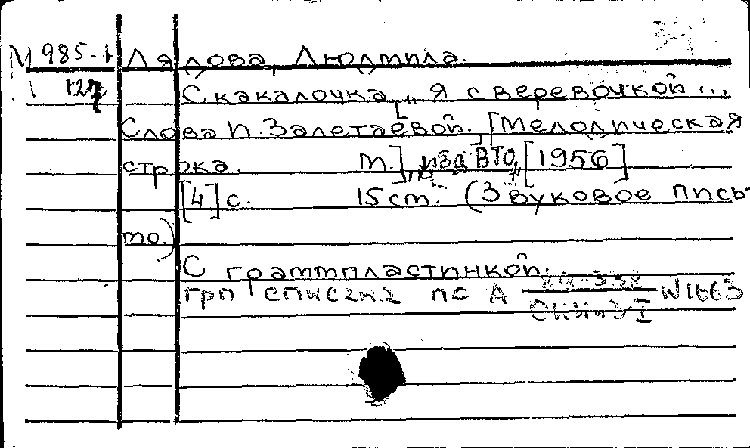 М 985-1 Лядова, Людмила.
127 Скакалочка „Я с веревочкой...
Слова П. Залетаевой. [Мелодическая
строка. М.], изд. ВТО, [1956]
[4] с. 15 cm. (Звуковое пись-
мо.)
С граммпластинкой.
грп спис 2 №1663